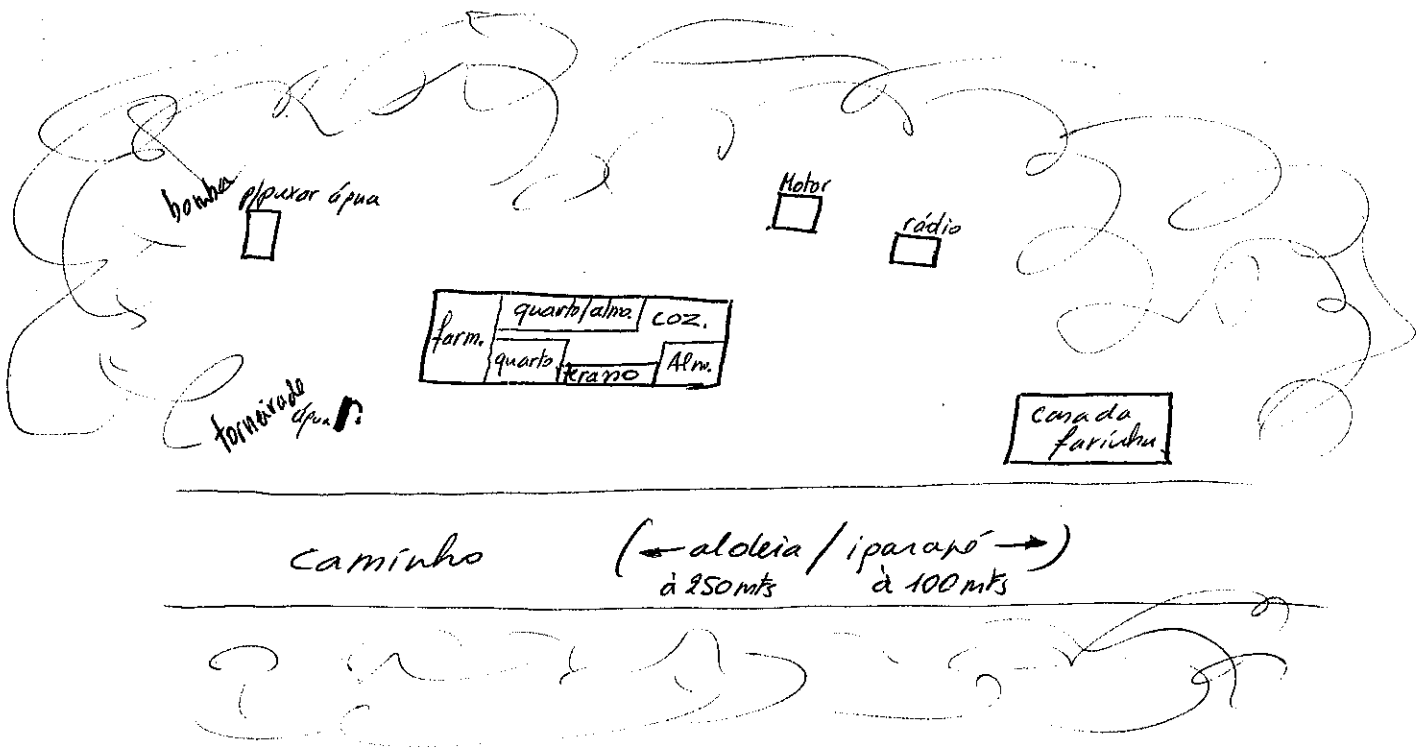 bomba
p/puxar água
Motor
rádio
farm.
quarto/alm.
coz.
quarto
terano
Alm.
torneira de
água
casa da
farinha
caminho
(← aldeia / igarapé →)
à 250 mts
à 100 mts